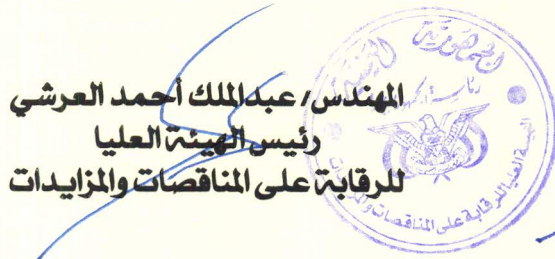 المهندس/ عبدالملك أحمد العرشي
رئيس الهيئة العليا
للرقابة على المناقصات والمزايدات
الجمهورية اليمنية
رئاسة الجمهورية
الهيئة العليا للرقابة على المناقصات والمزايدات